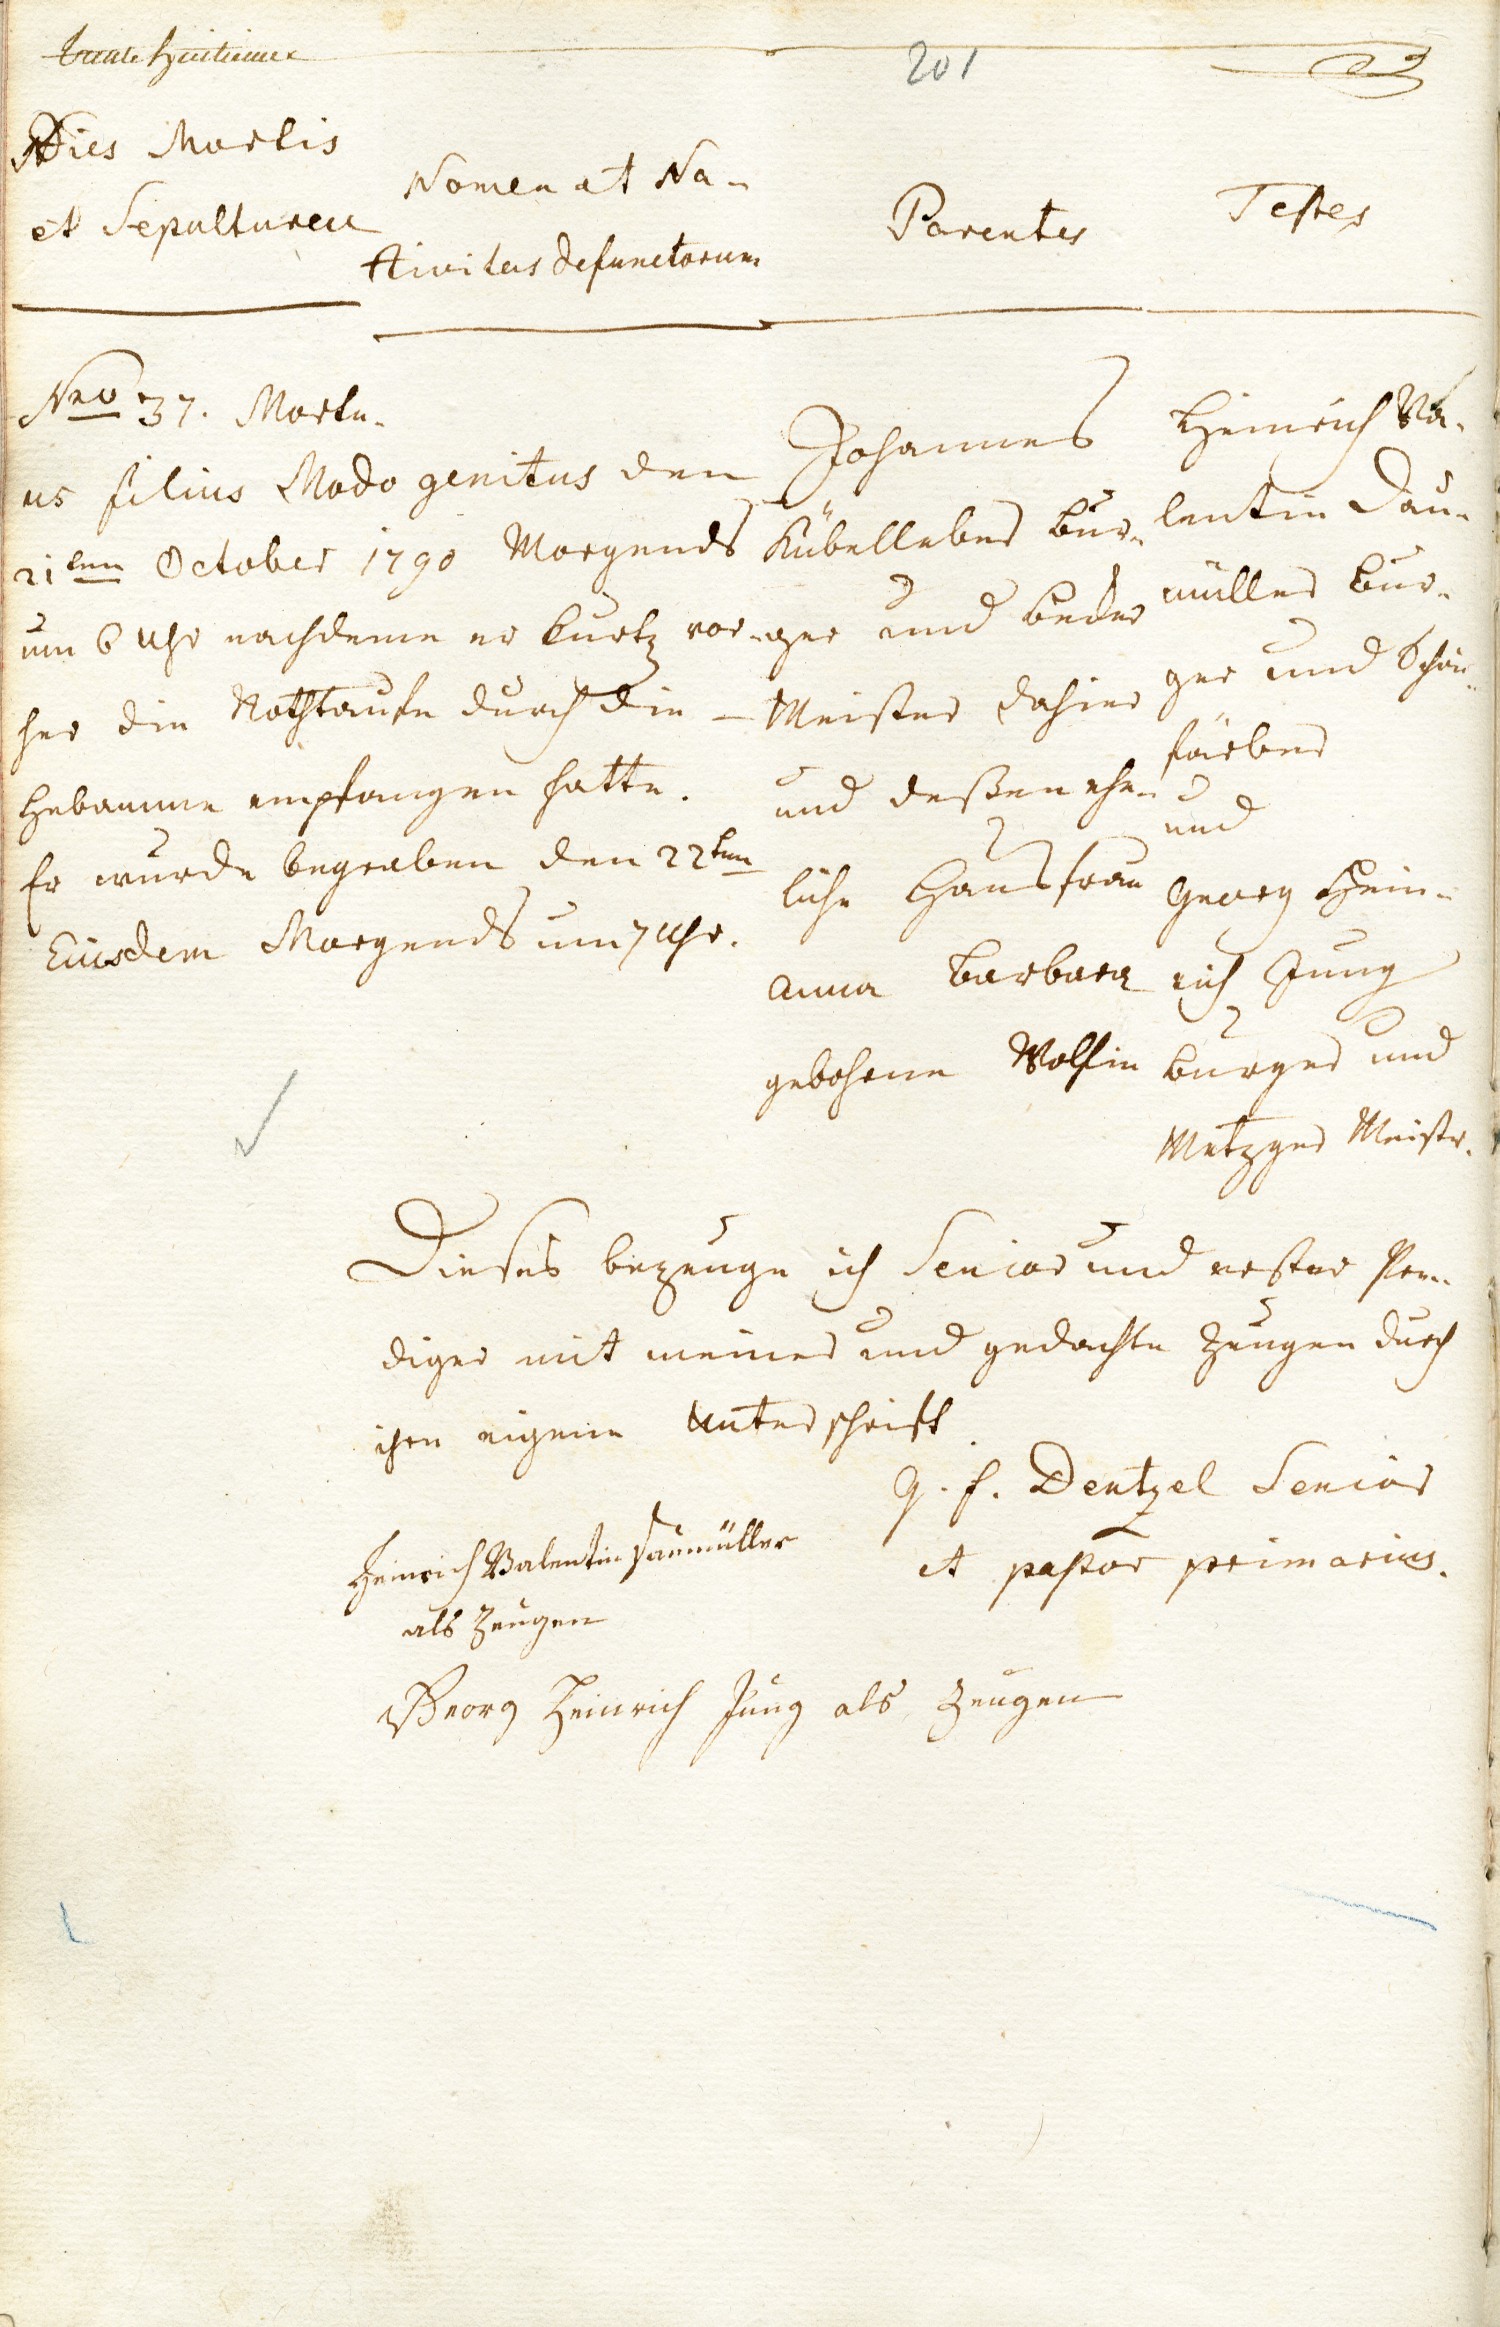 201
Dies Mortis
et Sepulturae
Nomen et Na-
tivitas defunctorum
Parentes
Testes
Nro 37. Mortu-
us filius Modo genitus den
21ten October 1790 Morgends
um 6 Uhr nachdeme er kurtz vor-
her die Nothtaufe durch die
Hebamme empfangen hatte.
Er wurde begraben den 22ten
Eiusdem Morgends um 7 Uhr.
Johannes
Kübelleber Bur-
ger und Beder
Meister dahier
und deßen ehe-
liche Hausfrau
Anna Barbara
gebohrne Wolfin
Heinrich Va-
lentin Dau-
müller Bur-
ger und Schön-
färber
und
Georg Hein-
rich Jung
Burger und
Metzger Meistr.
Dieses bezeuge ich Senior und erster Pre-
diger mit meiner und gedachte Zeugen durch
ihre eigene Unterschrift.
G. F. Dentzel Senior
et pastor primarius.
Heinrich Valentin Daumüller
als Zeugen
Georg Heinrich Jung als Zeugen